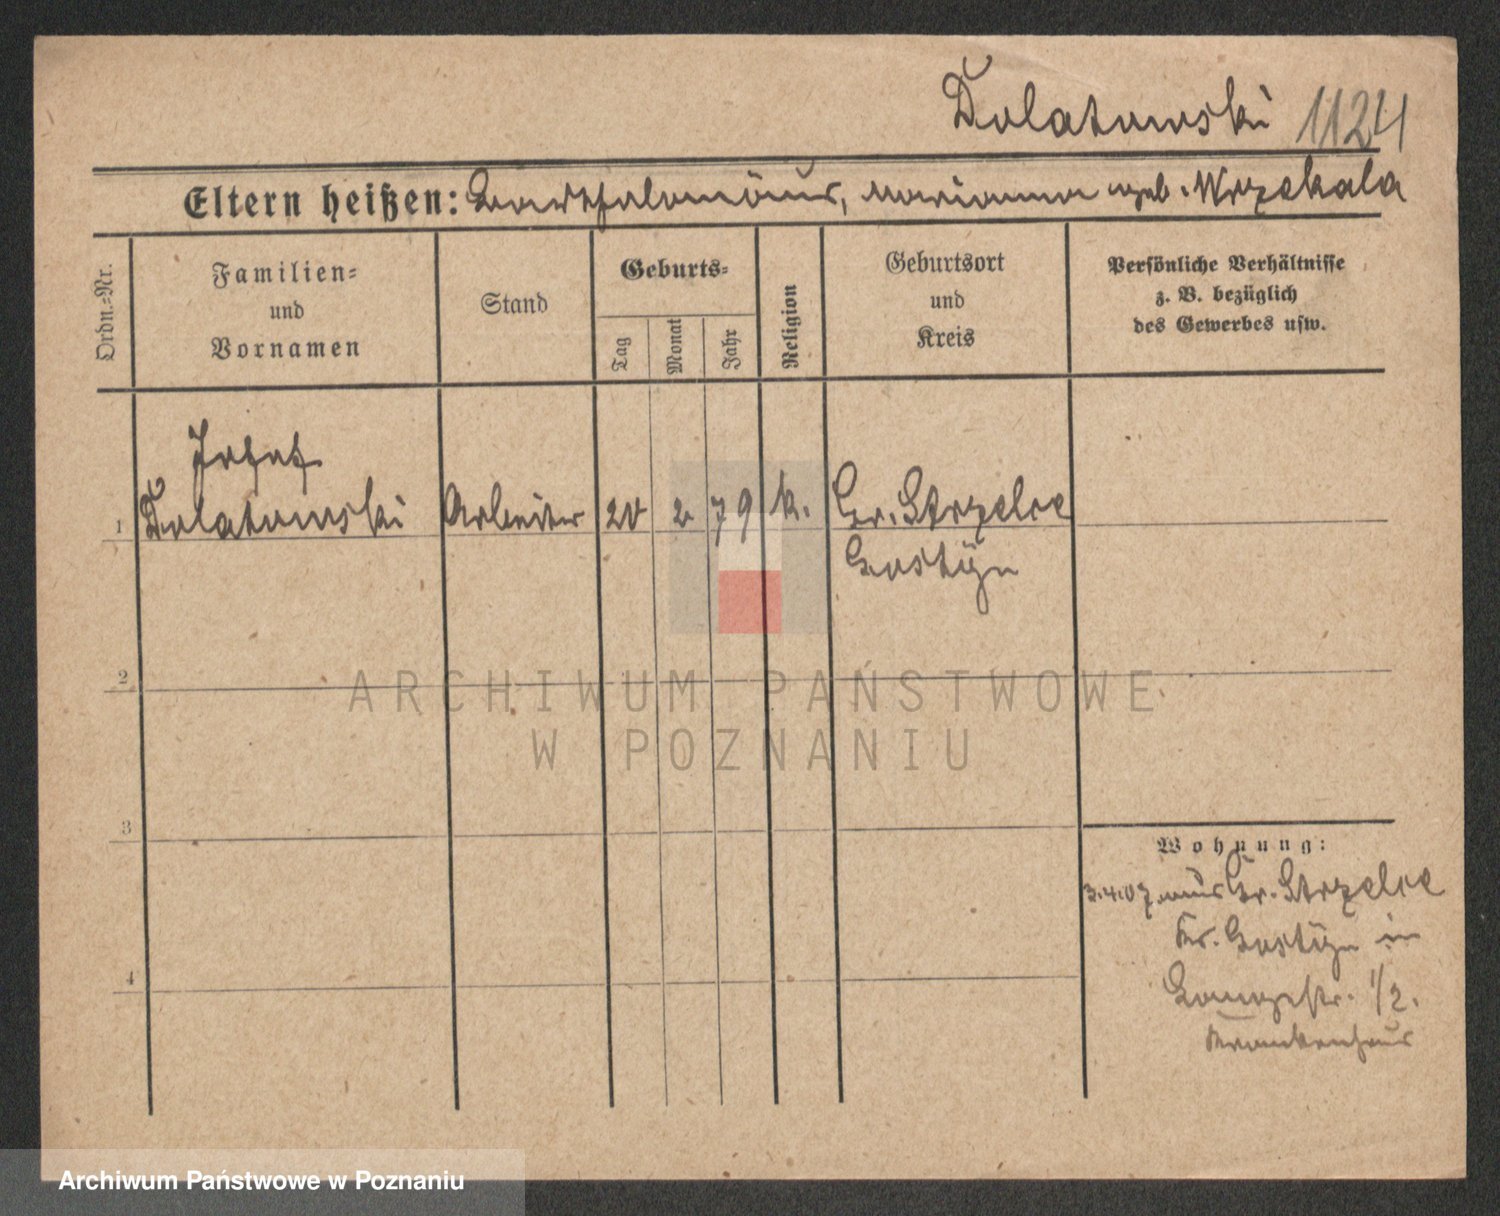 Dolatowski 1124
Eltern heißen: Bartholomäus, Marianna geb. Wrzekala
Ordn.-Nr.
Familien-
und
Vornamen
Stand
Geburts-
Tag
Monat
Jahr
Religion
Geburtsort
und
Kreis
Persönliche Verhältnisse
z. B. bezüglich
des Gewerbes usw.
Josef
1 Dolatowski Arbeiter 20 2 79 k. Gr. Strzelce
Gostyn
2
ARCHIWUM PAŃSTWOWE
W POZNANIU
3
Wohnung:
3.4.07 aus Gr. Strzelce
Kr. Gostyn in
Langestr. 1/2.
4
Krankenhaus
Archiwum Państwowe w Poznaniu